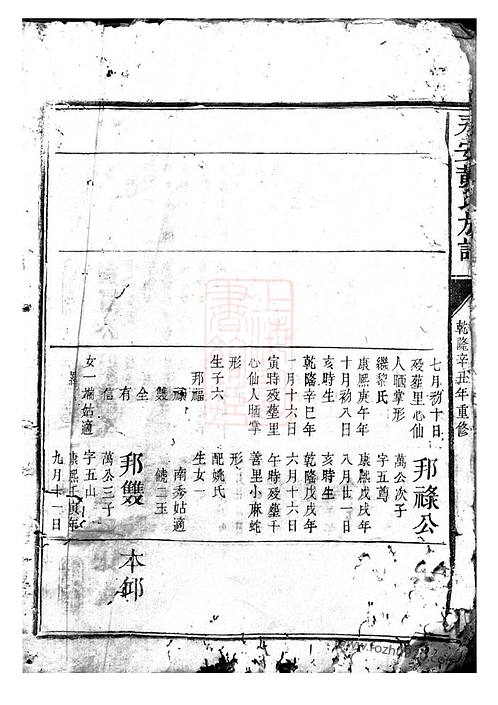 安黃氏族譜
乾隆辛丑年重修
七月初十日
歿塟里心仙
人晒掌形
繼黎氏
康熙庚午年
十月初八日
亥時生
乾隆辛巳年
一月十六日
寅時歿塟里
心仙人晒掌
形
生子六
邦福
祿
雙
全
有
信
女一 瑞姑適
邦祿公
萬公次子
字五尊
康熙戊戌年
八月廿一日
亥時生
乾隆戊戌年
六月十六日
午時歿塟千
善里小麻蛇
形
配姚氏
生女一
南秀姑適
二玉
邦雙 本邨
萬公三子
字五山
康熙寅年
九月十二日